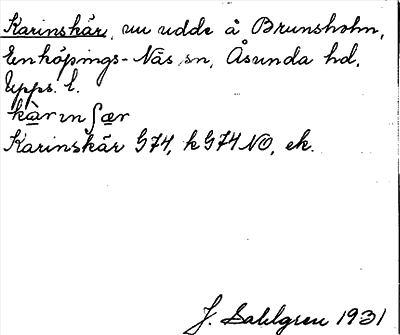 Karinskär, nu udde å Brunsholm,
Enköpings-Näs sn, Åsunda hd,
Upps. l.
kàrınʃær
Karinskär G74, k G74 NO, ek.
J. Sahlgren 1931